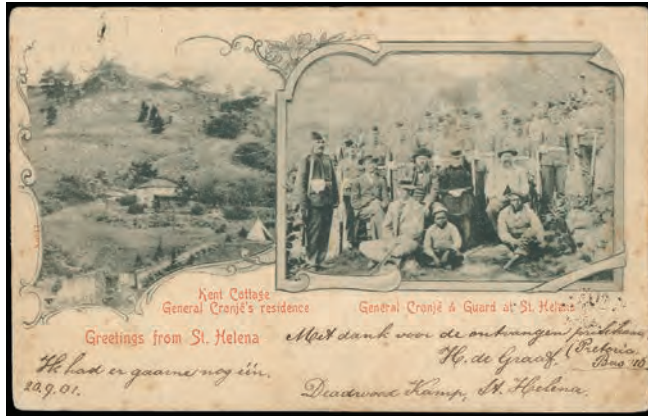 Kent Cottage
General Cronjé's residence
General Cronjé & Guard at St. Helena
Greetings from St. Helena
Met dank voor de ontvangen
H. de Graaf. (Pretoria
Ik had er gaarne nog één.
20.9.01.
Deadwood Kamp, St. Helena.